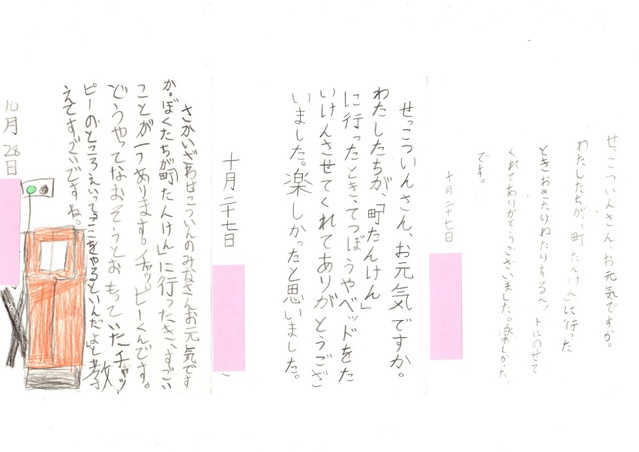 せっこついんさん、お元気ですか。
わたしたちが、「町たんけん」に行った
ときおきたりねたりするベットにのせて
くれてありがとうございました。楽しかった
です。
十月二十七日
せっこついんさん、お元気ですか。
わたしたちが、「町たんけん」
に行ったとき、てつぼうやベッドをた
いけんさせてくれてありがとうござ
いました。楽しかったと思いました。
十月二十七日
こついんのみなさんお元気です
か。ぼくたちが「町たんけん」に行ったとき、すごい
ことが一つあります。チャッピーくんです。
どうやってなおそうとおもっていたチャッ
ピーのところ ここをやるといんだよと教
えてすごいですね。
10月28日